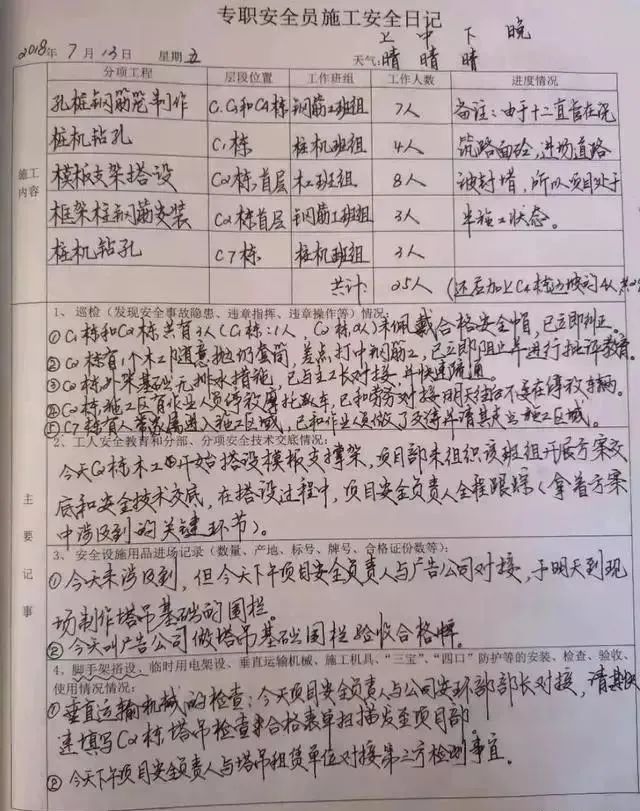 专职安全员施工安全日记
上 中 下 晚
2018年 7月 13日 星期五 天气:晴 晴 晴
分项工程 层段位置 工作班组 工作人数 进度情况
施工内容
孔桩钢筋笼制作 钢筋工班组 7人 备注:由于十二直管在浇
桩机钻孔 C1栋 桩机班组 4人 筑路面砼,进场道路
模板支架搭设 C2栋首层 木工班组 8人 被封堵,所以项目处于
框架柱钢筋安装 C2栋首层 钢筋工班组 3人 半施工状态。
桩机钻孔 C7栋 桩机班组 3人
共计: 25人
主要记事
1、巡检(发现安全事故隐患、违章指挥、违章操作等)情况:
①C1栋和C2栋共有3人(C1栋:1人,C2栋2人)未佩戴合格安全帽,已立即纠正。
②C2栋有1个木工随意抛扔套筒,差点打中钢筋工,已立即阻止并进行批评教育。
③C2栋外架基础无排水措施,已与工长对接,并快速疏通。
④C2栋施工区有作业人员停放摩托车,已和劳务对接明天往后不要在停放车辆。
⑤C7栋有人带家属进入施工区域,已和作业人员做了交待并请其走出施工区域。
2、工人安全教育和分部、分项安全技术交底情况:
今天C2栋木工开始搭设模板支撑架,项目部未组织该班组开展方案交
底和安全技术交底,在搭设过程中,项目安全负责人全程跟踪(拿着方案
中涉及到的关键环节)。
3、安全设施用品进场记录(数量、产地、标号、牌号、合格证份数等):
①今天未涉及到,但今天下午项目安全负责人与广告公司对接,于明天到现
场制作塔吊基础的围栏。
②今天叫广告公司做塔吊基础围栏验收合格牌。
4、脚手架搭设、临时用电架设、垂直运输机械、施工机具、“三宝”、“四口”防护等的安装、检查、验收、
使用情况情况:
①垂直运输机械的检查:今天项目安全负责人与公司安环部部长对接,请其
速填写C2栋塔吊检查合格表单扫描发至项目部。
②今天下午项目安全负责人与塔吊租赁单位对接第三方检测事宜。